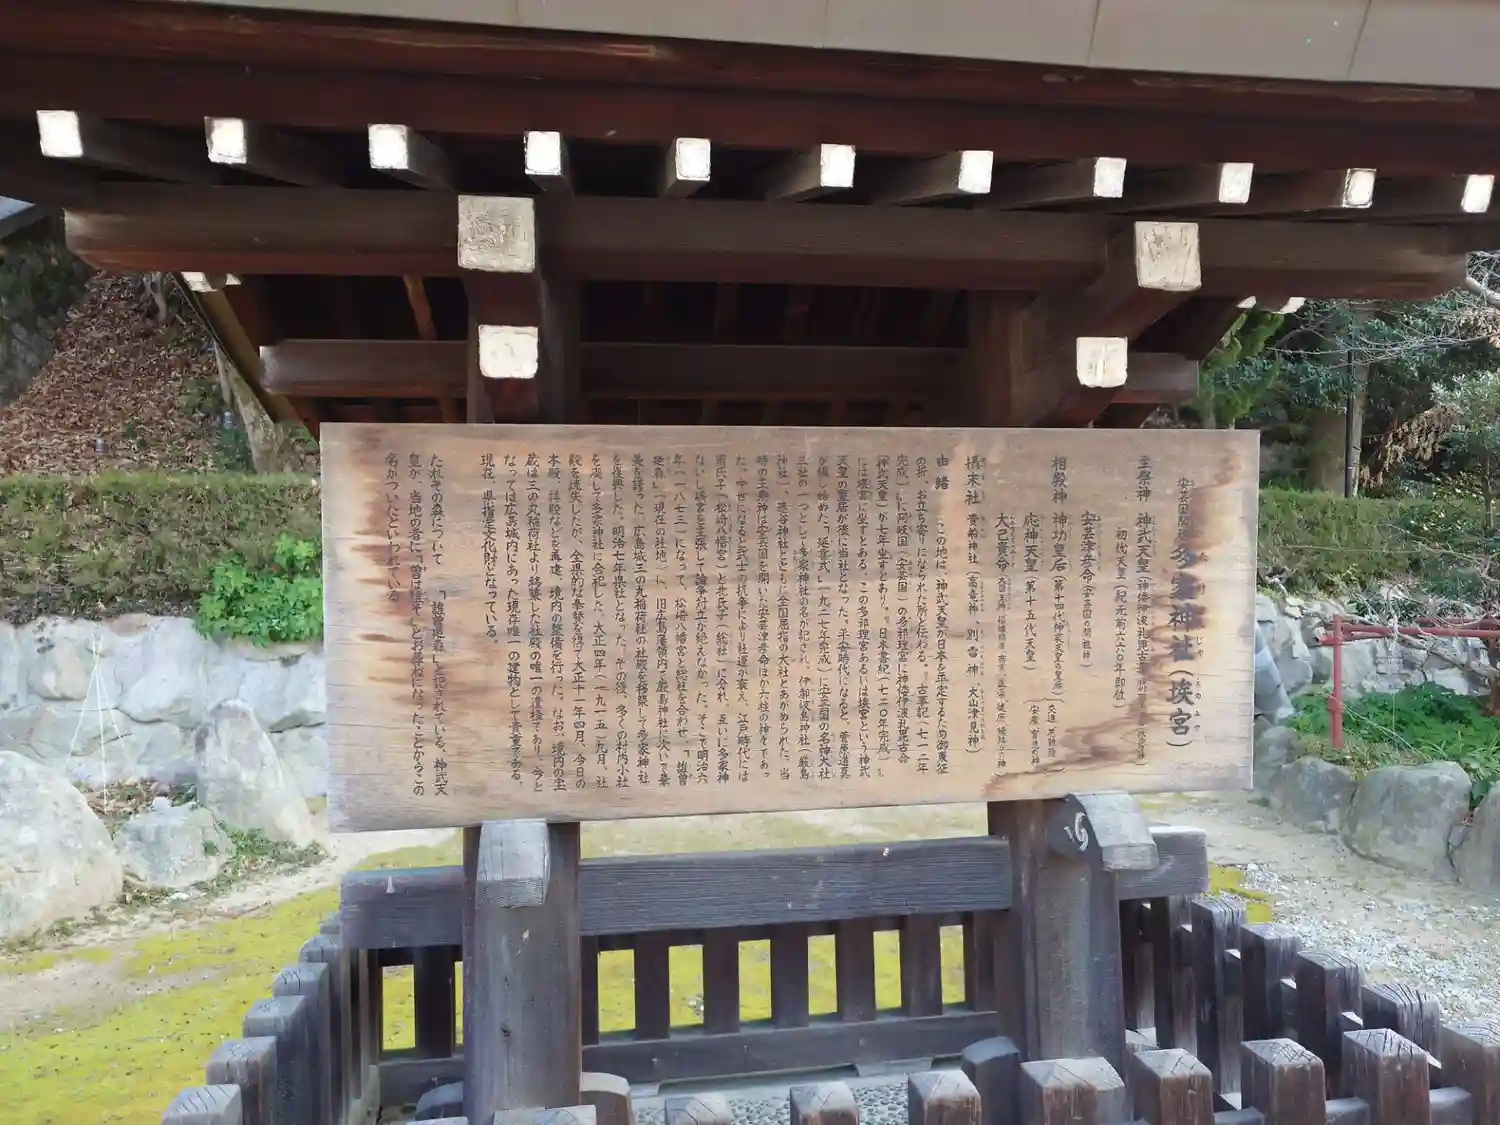 安芸国開祖 多家神社(埃宮)
主祭神 神武天皇
初代天皇(紀元前六六〇年即位)
安芸津彦命(安芸国の開祖神)
相殿神 神功皇后(第十四代仲哀天皇の皇后)
応神天皇(第十五代天皇)
大己貴命
摂末社 貴船神社(高竜神、別雷神、大山津見神)
由緒 この地は、神武天皇が日本を平定するため御東征
の折、お立ち寄りになられた所と伝わる。『古事記(七一二年
完成)』に阿岐国(安芸国)の多祁理宮に神倭伊波礼毘古命
(神武天皇)が七年坐すとあり。『日本書紀(七二〇年完成)』
には埃宮に坐すとある。この多祁理宮あるいは埃宮という神武
天皇の皇居が後に当社となった。平安時代になると、菅原道真
が編し始めた『延喜式』(九二七年完成)に安芸国の名神大社
三社の一つとして多家神社の名が記され、伊都岐島神社(厳島
神社)、速谷神社とともに全国屈指の大社とあがめられた。当
時の主祭神は安芸国を開いた安芸津彦命ほか六柱の神々であっ
た。中世になると武士の抗争により社運が衰え、江戸時代には
南氏子(松崎八幡宮)と北氏子(総社)に分れ、互いに多家神
ないし埃宮を主張して論争対立が絶えなかった。そこで明治六
年(一八七三)になって、松崎八幡宮と総社を合わせ、「誰曽
廼森」(現在の社地)に、旧広島藩領内で厳島神社に次いで豪
華を誇った、広島城三の丸稲荷社の社殿を移築して多家神社
を復興した。明治七年県社となった。その後、多くの村内小社
を廃して多家神社に合祀した。大正四年(一九一五)九月、社
殿を焼失したが、全県的な奉賛を得て大正十一年四月、今日の
本殿、拝殿などを再建、境内の整備を行った。なお、境内の宝
蔵は三の丸稲荷社より移築した社殿の唯一の遺構であり、今と
なっては広島城内にあった現存唯一の建物として貴重である。
現在、県指定文化財となっている。
たれその森について 「誰曽廼森」と記されている。神武天
皇が、当地の者に、「曽は誰そ」とお尋ねになったことからこの
名がついたといわれている。